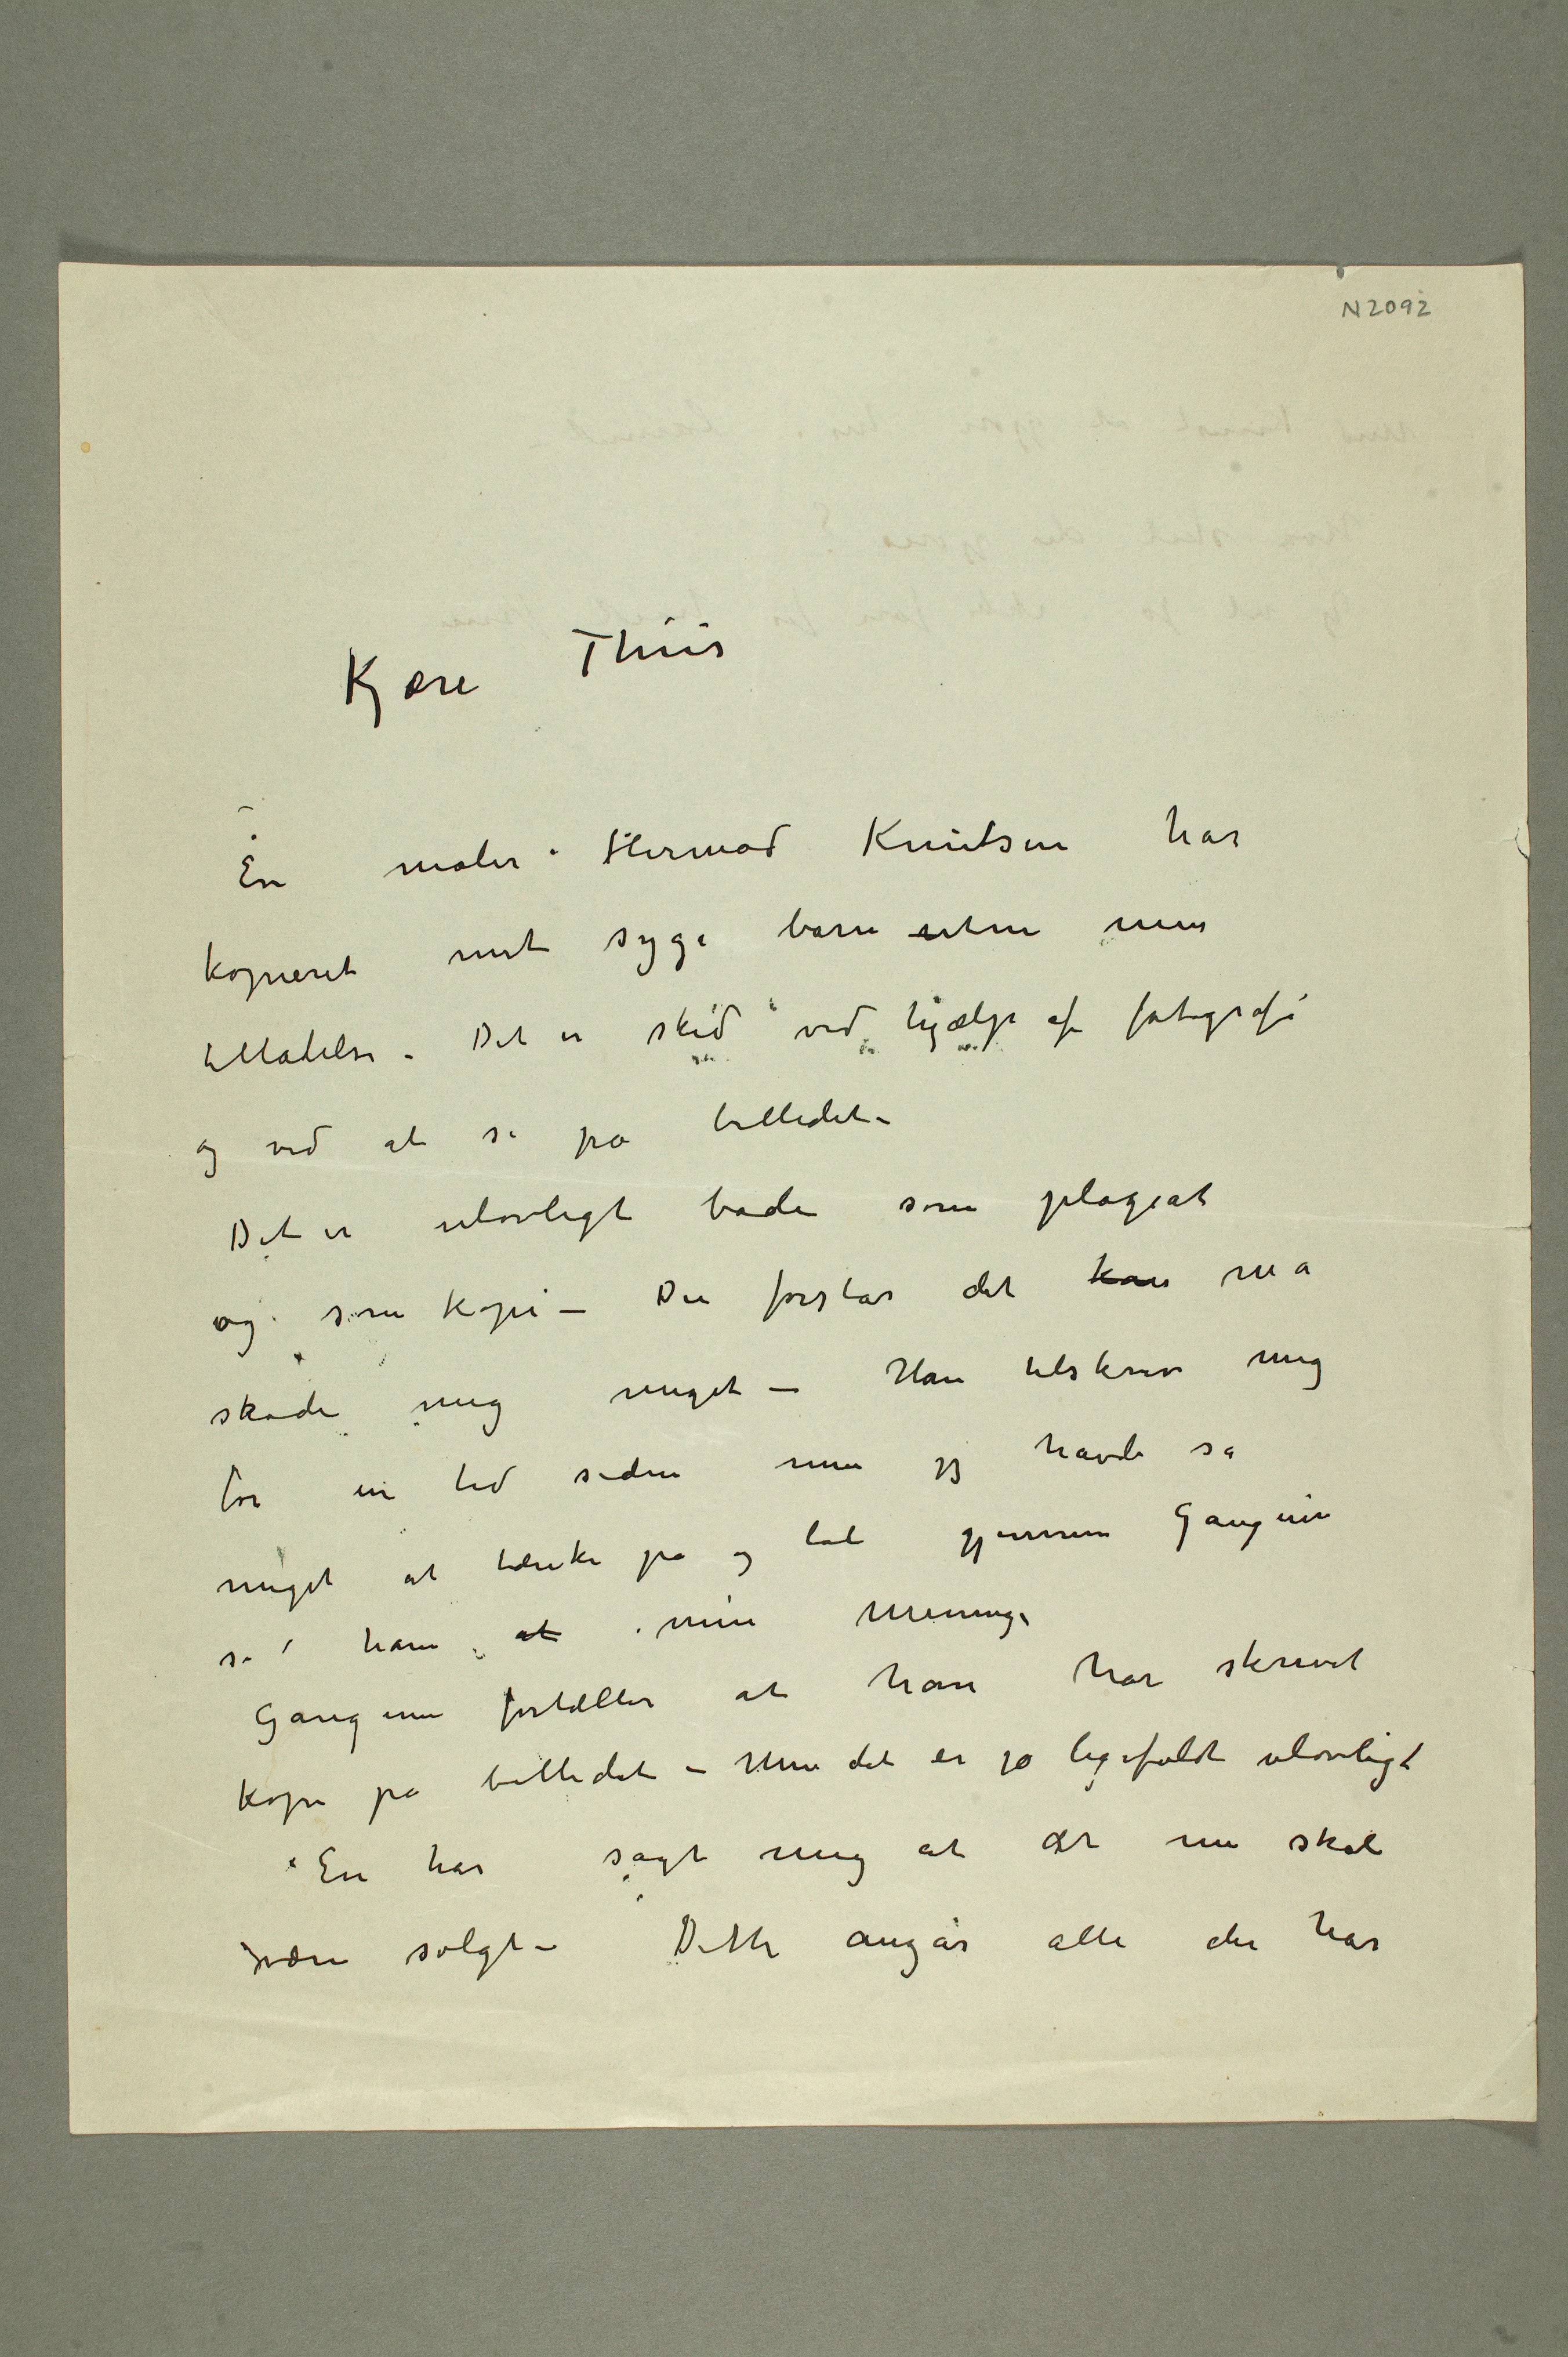 N 2092
Kjære Thiis
En maler Hermod Knutsen har
kopieret mit syge barn uten min
tilladelse – Det er skéd ved hjælp af fotografi
og ved at se på billedet –
Det er ulovligt både som plagiat
og som kopi – Du forstår det kan må
skade mig meget – Han tilskrev mig
for en tid siden men jeg havde så
meget at tænke på og lod gjennem Gauguin
si ham at min mening
Gauguin fortæller at han har skrevet
kopi på billedet – Men det er jo ligefuldt ulovligt
En har sagt mig at det nu skal
være solgt – Dette angår alle der har